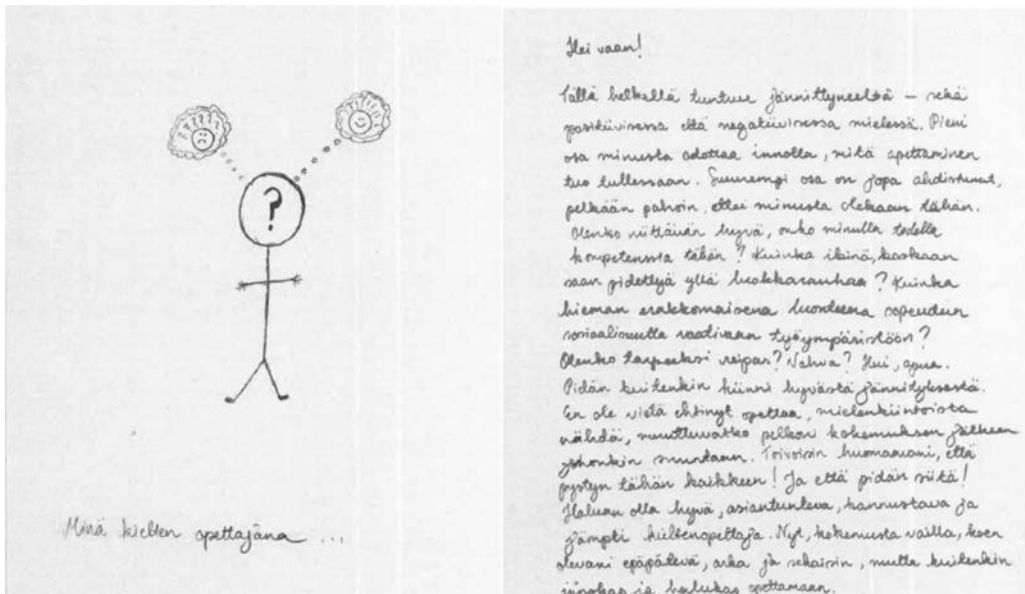 ?
Minä kielten opettajana ...
Hei vaan!
Tällä hetkellä tuntuu jännittyneeltä – sekä
positiivisessa että negatiivisessa mielessä. Pieni
osa minusta odottaa innolla, mitä opettaminen
tuo tullessaan. Suurempi osa on jopa ahdistunut,
pelkään pahoin, ettei minusta olekaan tähän.
Olenko riittävän hyvä, onko minulla todella
kompetenssia tähän? Kuinka ikinä, koskaan
saan pidettyä yllä luokkarauhaa? Kuinka
hieman erakkomaisena luonteena sopeudun
sosiaalisuutta vaativaan työympäristöön?
Olenko tarpeeksi reipas? Vahva? Hui, apua.
Pidän kuitenkin kiinni hyvästä jännityksestä.
En ole vielä ehtinyt opettaa, mielenkiintoista
nähdä, muuttuvatko pelkoni kokemuksen jälkeen
johonkin suuntaan. Toivoisin huomaavani, että
pystyn tähän kaikkeen! Ja että pidän siitä!
Haluan olla hyvä, asiantunteva, kannustava ja
jämpti kieltenopettaja. Nyt, kokemusta vailla, koen
olevani epäpätevä, arka ja sekaisin, mutta kuitenkin
innokas ja halukas opettamaan.